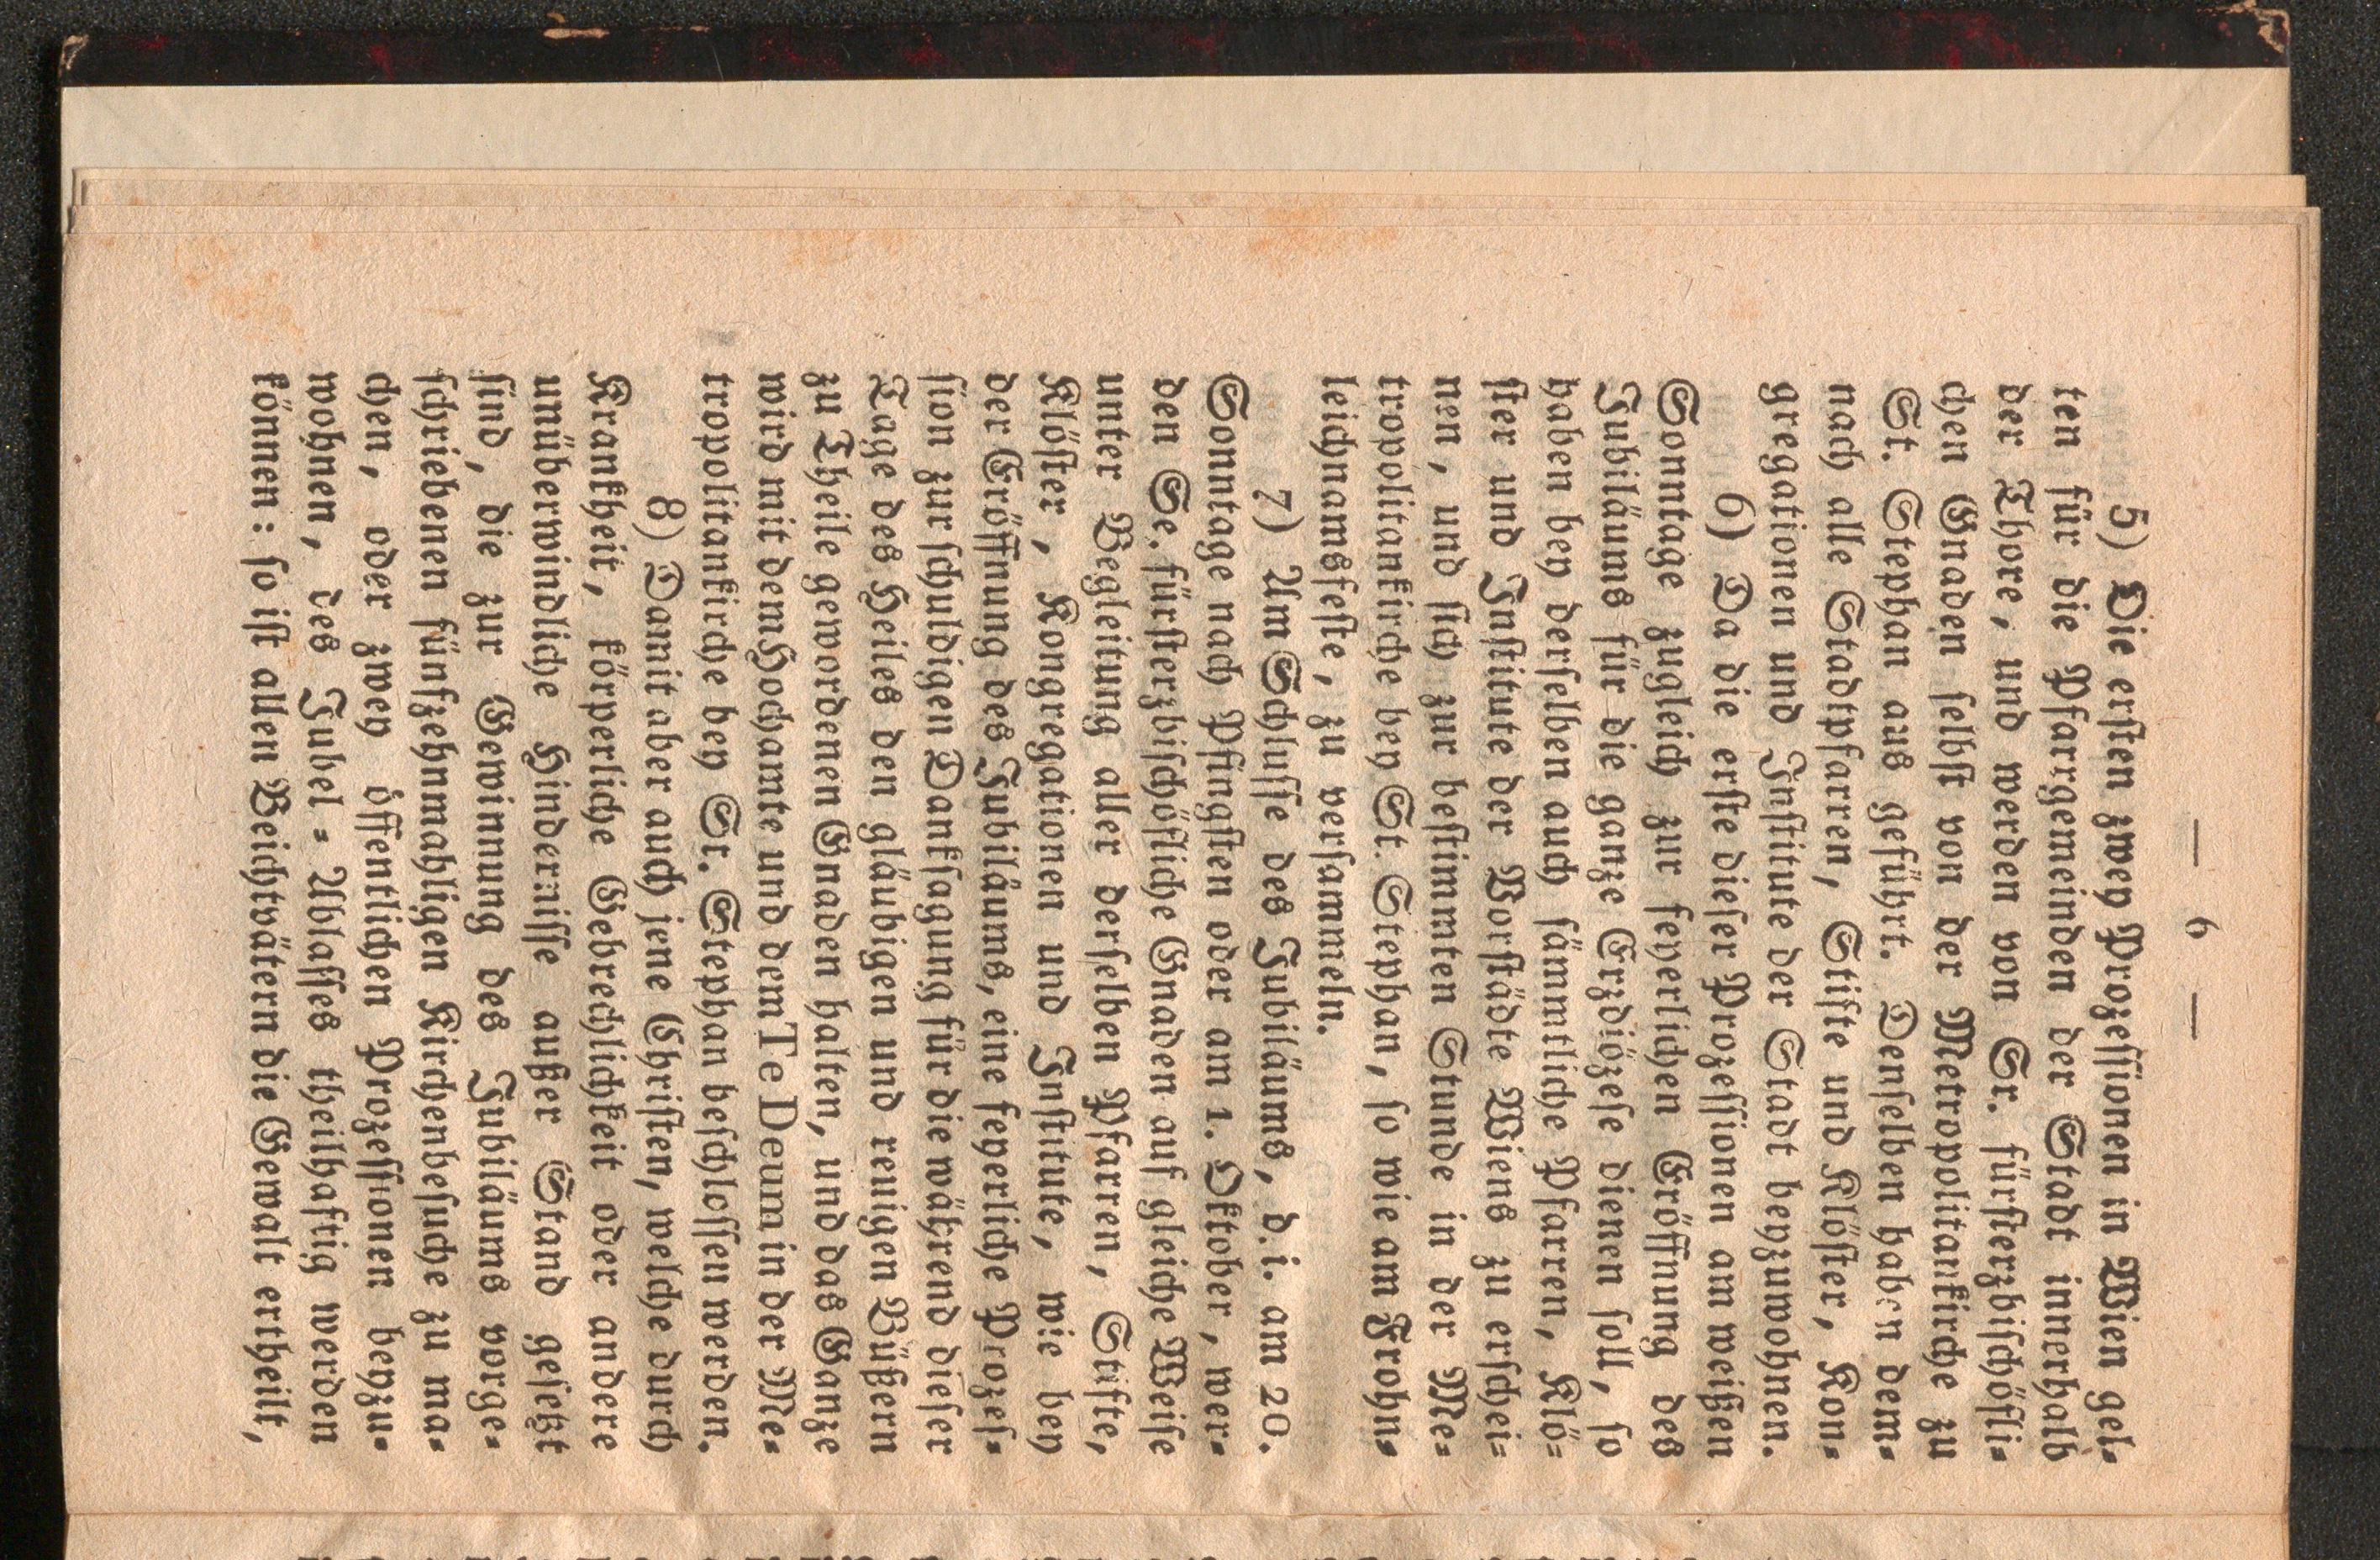 — 6 —
5) Die erſten zwey Prozeſſionen in Wien gel⸗
ten für die Pfarrgemeinden der Stadt innerhalb
der Thore, und werden von Sr. fürſterzbiſchöfli⸗
chen Gnaden ſelbſt von der Metropolitankirche zu
St. Stephan aus geführt. Denſelben haben dem⸗
nach alle Stadtpfarren, Stifte und Klöſter, Kon⸗
gregationen und Inſtitute der Stadt beyzuwohnen.
6) Da die erſte dieſer Prozeſſionen am weißen
Sonntage zugleich zur feyerlichen Eröffnung des
Jubiläums für die ganze Erzdiözeſe dienen ſoll, ſo
haben bey derſelben auch ſämmtliche Pfarren, Klö⸗
ſter und Inſtitute der Vorſtädte Wiens zu erſchei⸗
nen, und ſich zur beſtimmten Stunde in der Me⸗
tropolitankirche bey St. Stephan, ſo wie am Frohn⸗
leichnamsfeſte, zu verſammeln.
7) Am Schluſſe des Jubiläums, d. i. am 20.
Sonntage nach Pfingſten oder am 1. Oktober, wer⸗
den Se. fürſterzbiſchöfliche Gnaden auf gleiche Weiſe
unter Begleitung aller derſelben Pfarren, Stifte,
Klöſter, Kongregationen und Inſtitute, wie bey
der Eröffnung des Jubiläums, eine feyerliche Prozeſ⸗
ſion zur ſchuldigen Dankſagung für die während dieſer
Tage des Heiles den gläubigen und reuigen Büßern
zu Theile gewordenen Gnaden halten, und das Ganze
wird mit dem Hochamte und dem Te Deum in der Me⸗
tropolitankirche bey St. Stephan beſchloſſen werden.
8) Damit aber auch jene Chriſten, welche durch
Krankheit, körperliche Gebrechlichkeit oder andere
unüberwindliche Hinderniſſe außer Stand geſetzt
ſind, die zur Gewinnung des Jubiläums vorge⸗
ſchriebenen fünfzehnmahligen Kirchenbeſuche zu ma⸗
chen, oder zwey öffentlichen Prozeſſionen beyzu⸗
wohnen, des Jubel⸗Ablaſſes theilhaftig werden
können: ſo iſt allen Beichtvätern die Gewalt ertheilt,